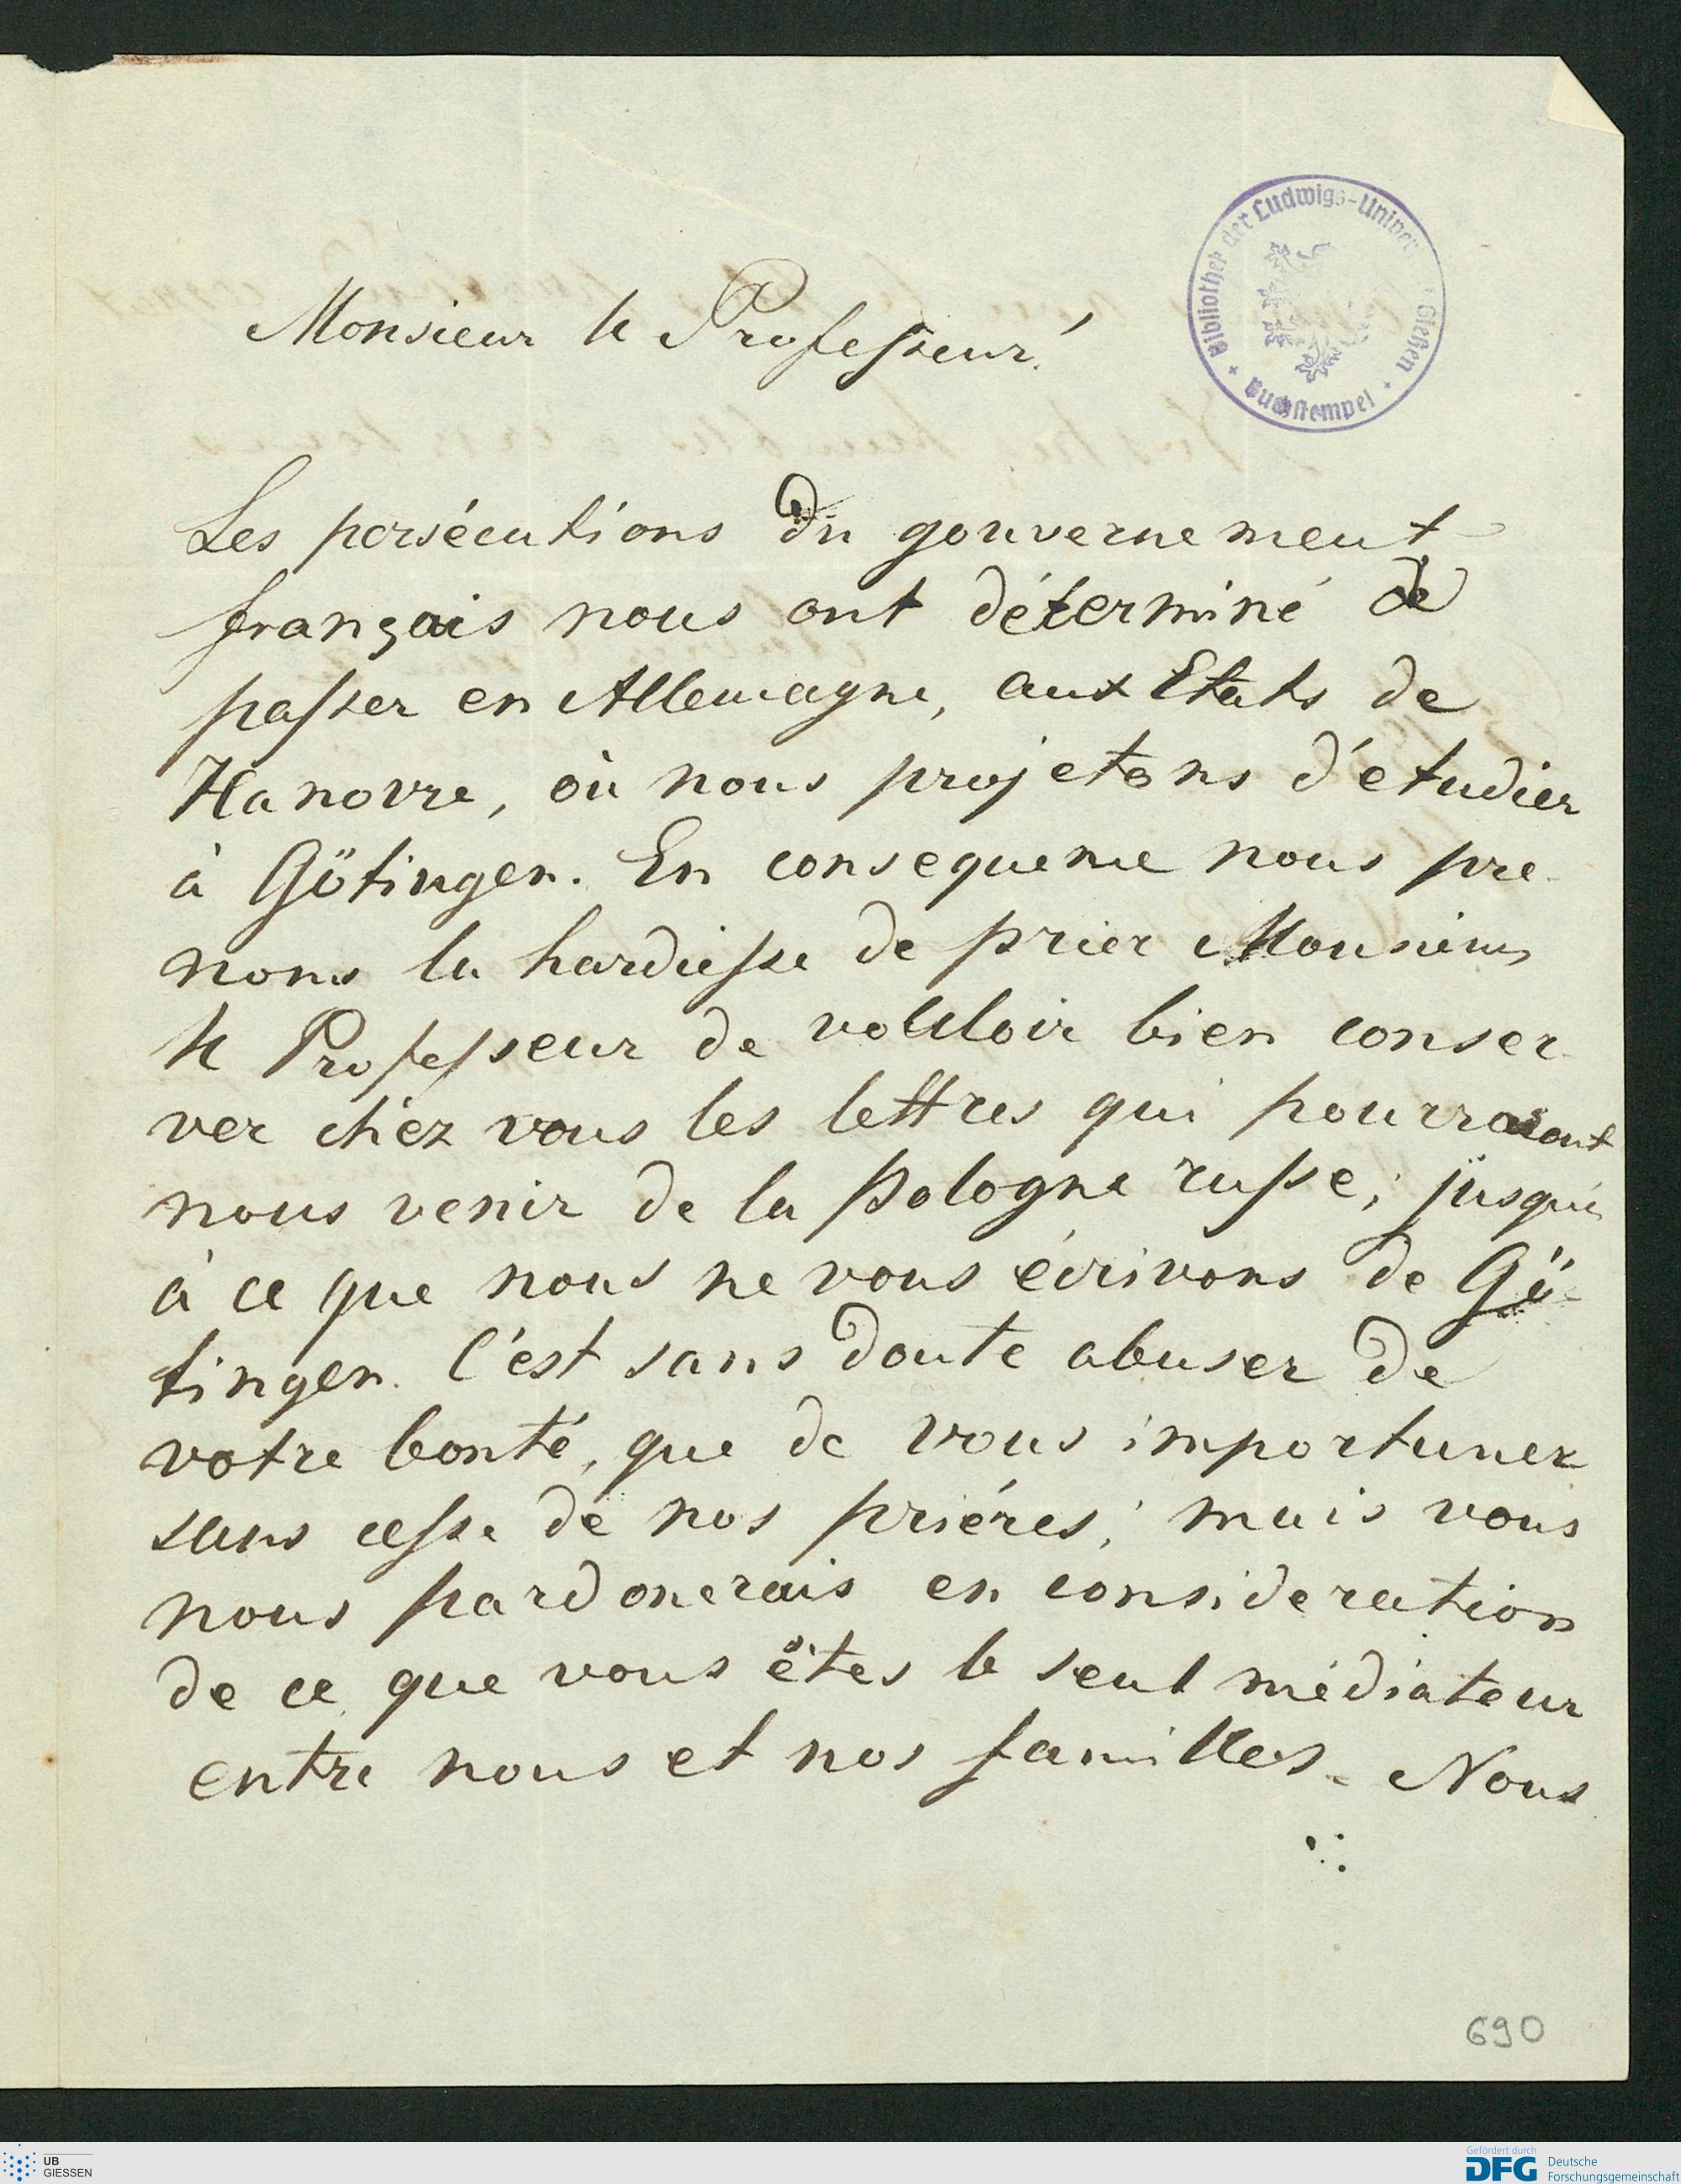 Bibliothek der Ludwigs-Univer Gießen
Buchstempel
Monsieur le Professeur!
Les persécutions du gouvernement
français nous ont déterminé de
passer en Allemagne, aux Etats de
Hanovre, où nous projetons d'étudier
à Götingen. En consequence nous pre-
nons la hardiesse de prier Monsieur
le Professeur de vouloir bien conser-
ver chez vous les lettres qui
nous venir de la Pologne russe; jusqu'
à ce que nous ne vous écrivons de Gö-
tingen. C'est sans doute abuser de
votre bonté, que de vous importuner
sans cesse de nos priéres; mais vous
nous pardonerais en consideration
de ce que vous êtes le seul médiateur
entre nous et nos familles. Nous
690
UB
GIESSEN
Gefördert durch
DFG Deutsche
Forschungsgemeinschaft